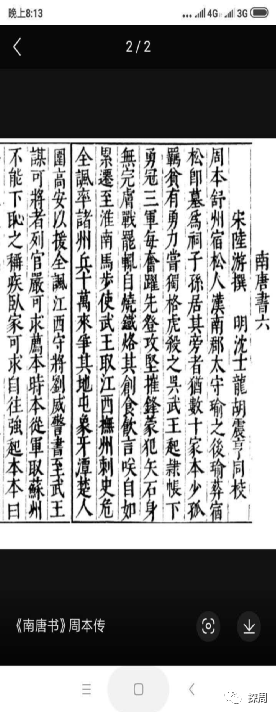 晚上8:13
4G 3G
2/2
南唐書六
宋陸游撰 明沈士龍胡震亨同校
周本舒州宿松人漢南郡太守瑜之後瑜葬宿
松即墓為祠子孫居其旁者猶數十家本少孤
羈貧有勇力嘗獨格虎殺之吳武王起隸帳下
勇冠三軍每奮躍先登攻堅摧鋒蒙犯矢石身
無完膚戰罷輒自燒鐵烙其創食飲言笑自如
累遷至淮南馬步使武王取江西撫州刺史危
全諷率諸州兵十萬來爭其地屯象牙潭楚人
圍高安以援全諷江西守將劉威警書至武王
謀可將者列官嚴可求薦本時本從軍取蘇州
不能下恥之稱疾臥家可求自往強起本本曰
《南唐书》周本传
探周